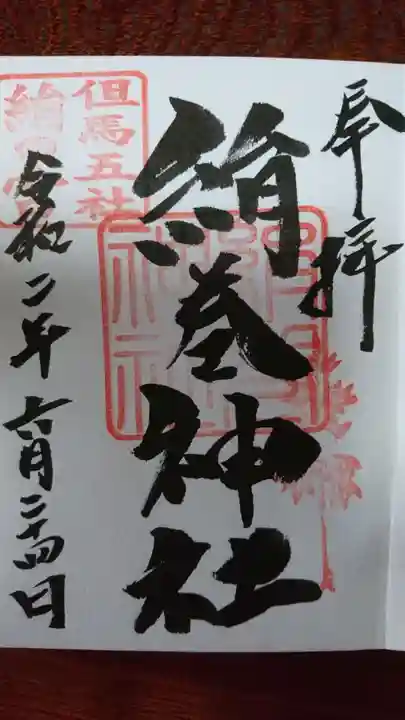 奉拝
絹巻神社
但馬五社
絹巻神社
令和二年六月二十四日